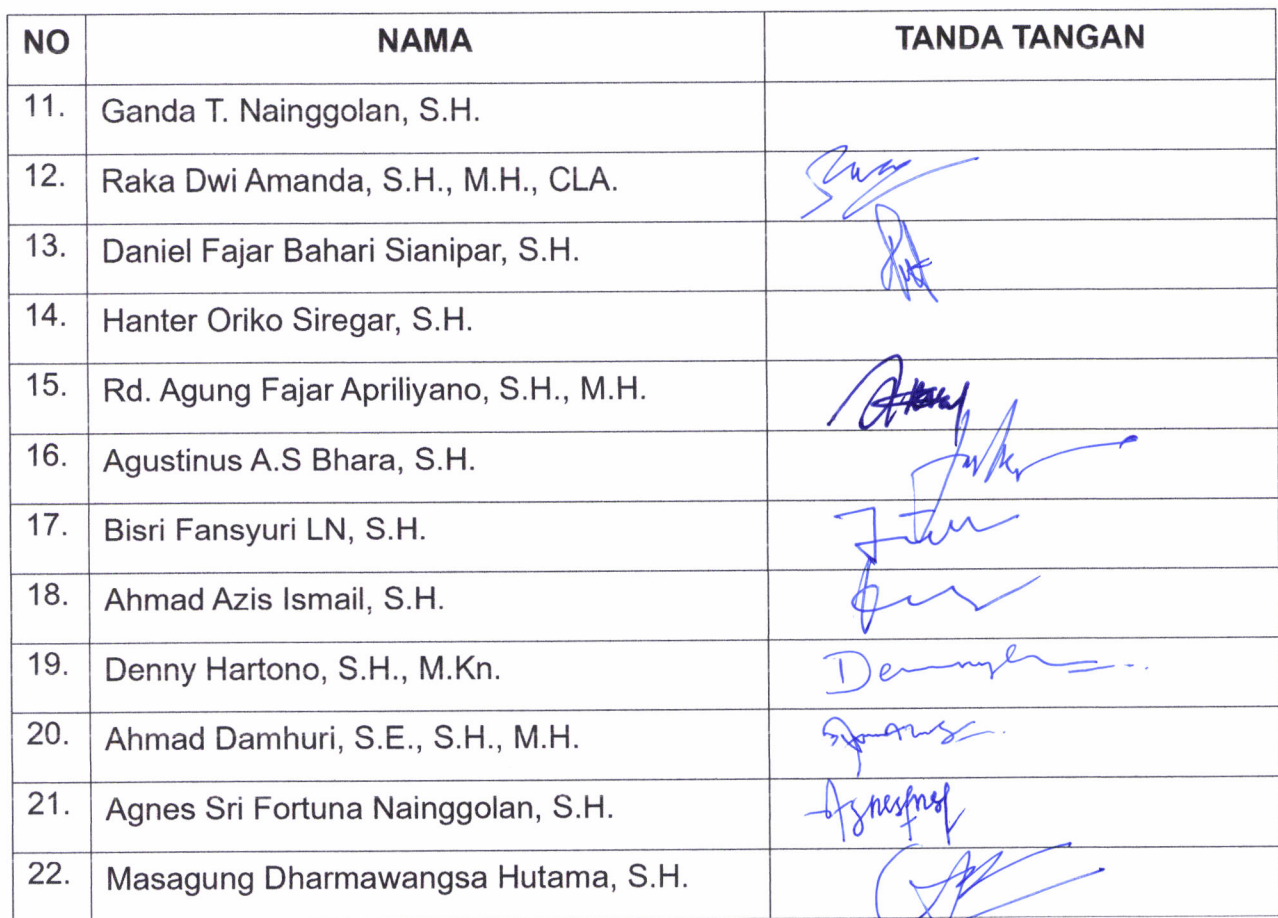 NO NAMA TANDA TANGAN
11. Ganda T. Nainggolan, S.H.
12. Raka Dwi Amanda, S.H., M.H., CLA.
13. Daniel Fajar Bahari Sianipar, S.H.
14. Hanter Oriko Siregar, S.H.
15. Rd. Agung Fajar Apriliyano, S.H., M.H.
16. Agustinus A.S Bhara, S.H.
17. Bisri Fansyuri LN, S.H.
18. Ahmad Azis Ismail, S.H.
19. Denny Hartono, S.H., M.Kn.
20. Ahmad Damhuri, S.E., S.H., M.H.
21. Agnes Sri Fortuna Nainggolan, S.H.
22. Masagung Dharmawangsa Hutama, S.H.